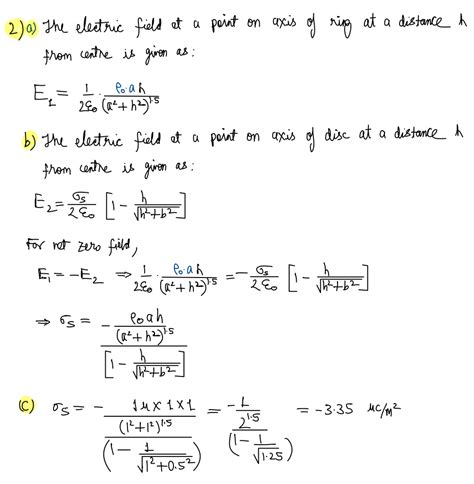 2) a) The electric field at a point on axis of ring at a distance h
from centre is given as:
E₁ = 1/2ε₀ · ρ₀·a h/(a²+h²)^1.5
b) The electric field at a point on axis of disc at a distance h
from centre is given as:
E₂ = σs/2ε₀ [1 - h/√(h²+b²)]
For net zero field,
E₁ = -E₂ ⇒ 1/2ε₀ · ρ₀·a h/(a²+h²)^1.5 = - σs/2ε₀ [1 - h/√(h²+b²)]
⇒ σs = - (ρ₀ a h/(a²+h²)^1.5) / [1 - h/√(h²+b²)]
(C) σs = - (1μ×1×1/(1²+1²)^1.5) / (1 - 1/√(1²+0.5²)) = (-1/2^1.5) / (1 - 1/√1.25) = -3.35 μC/m²